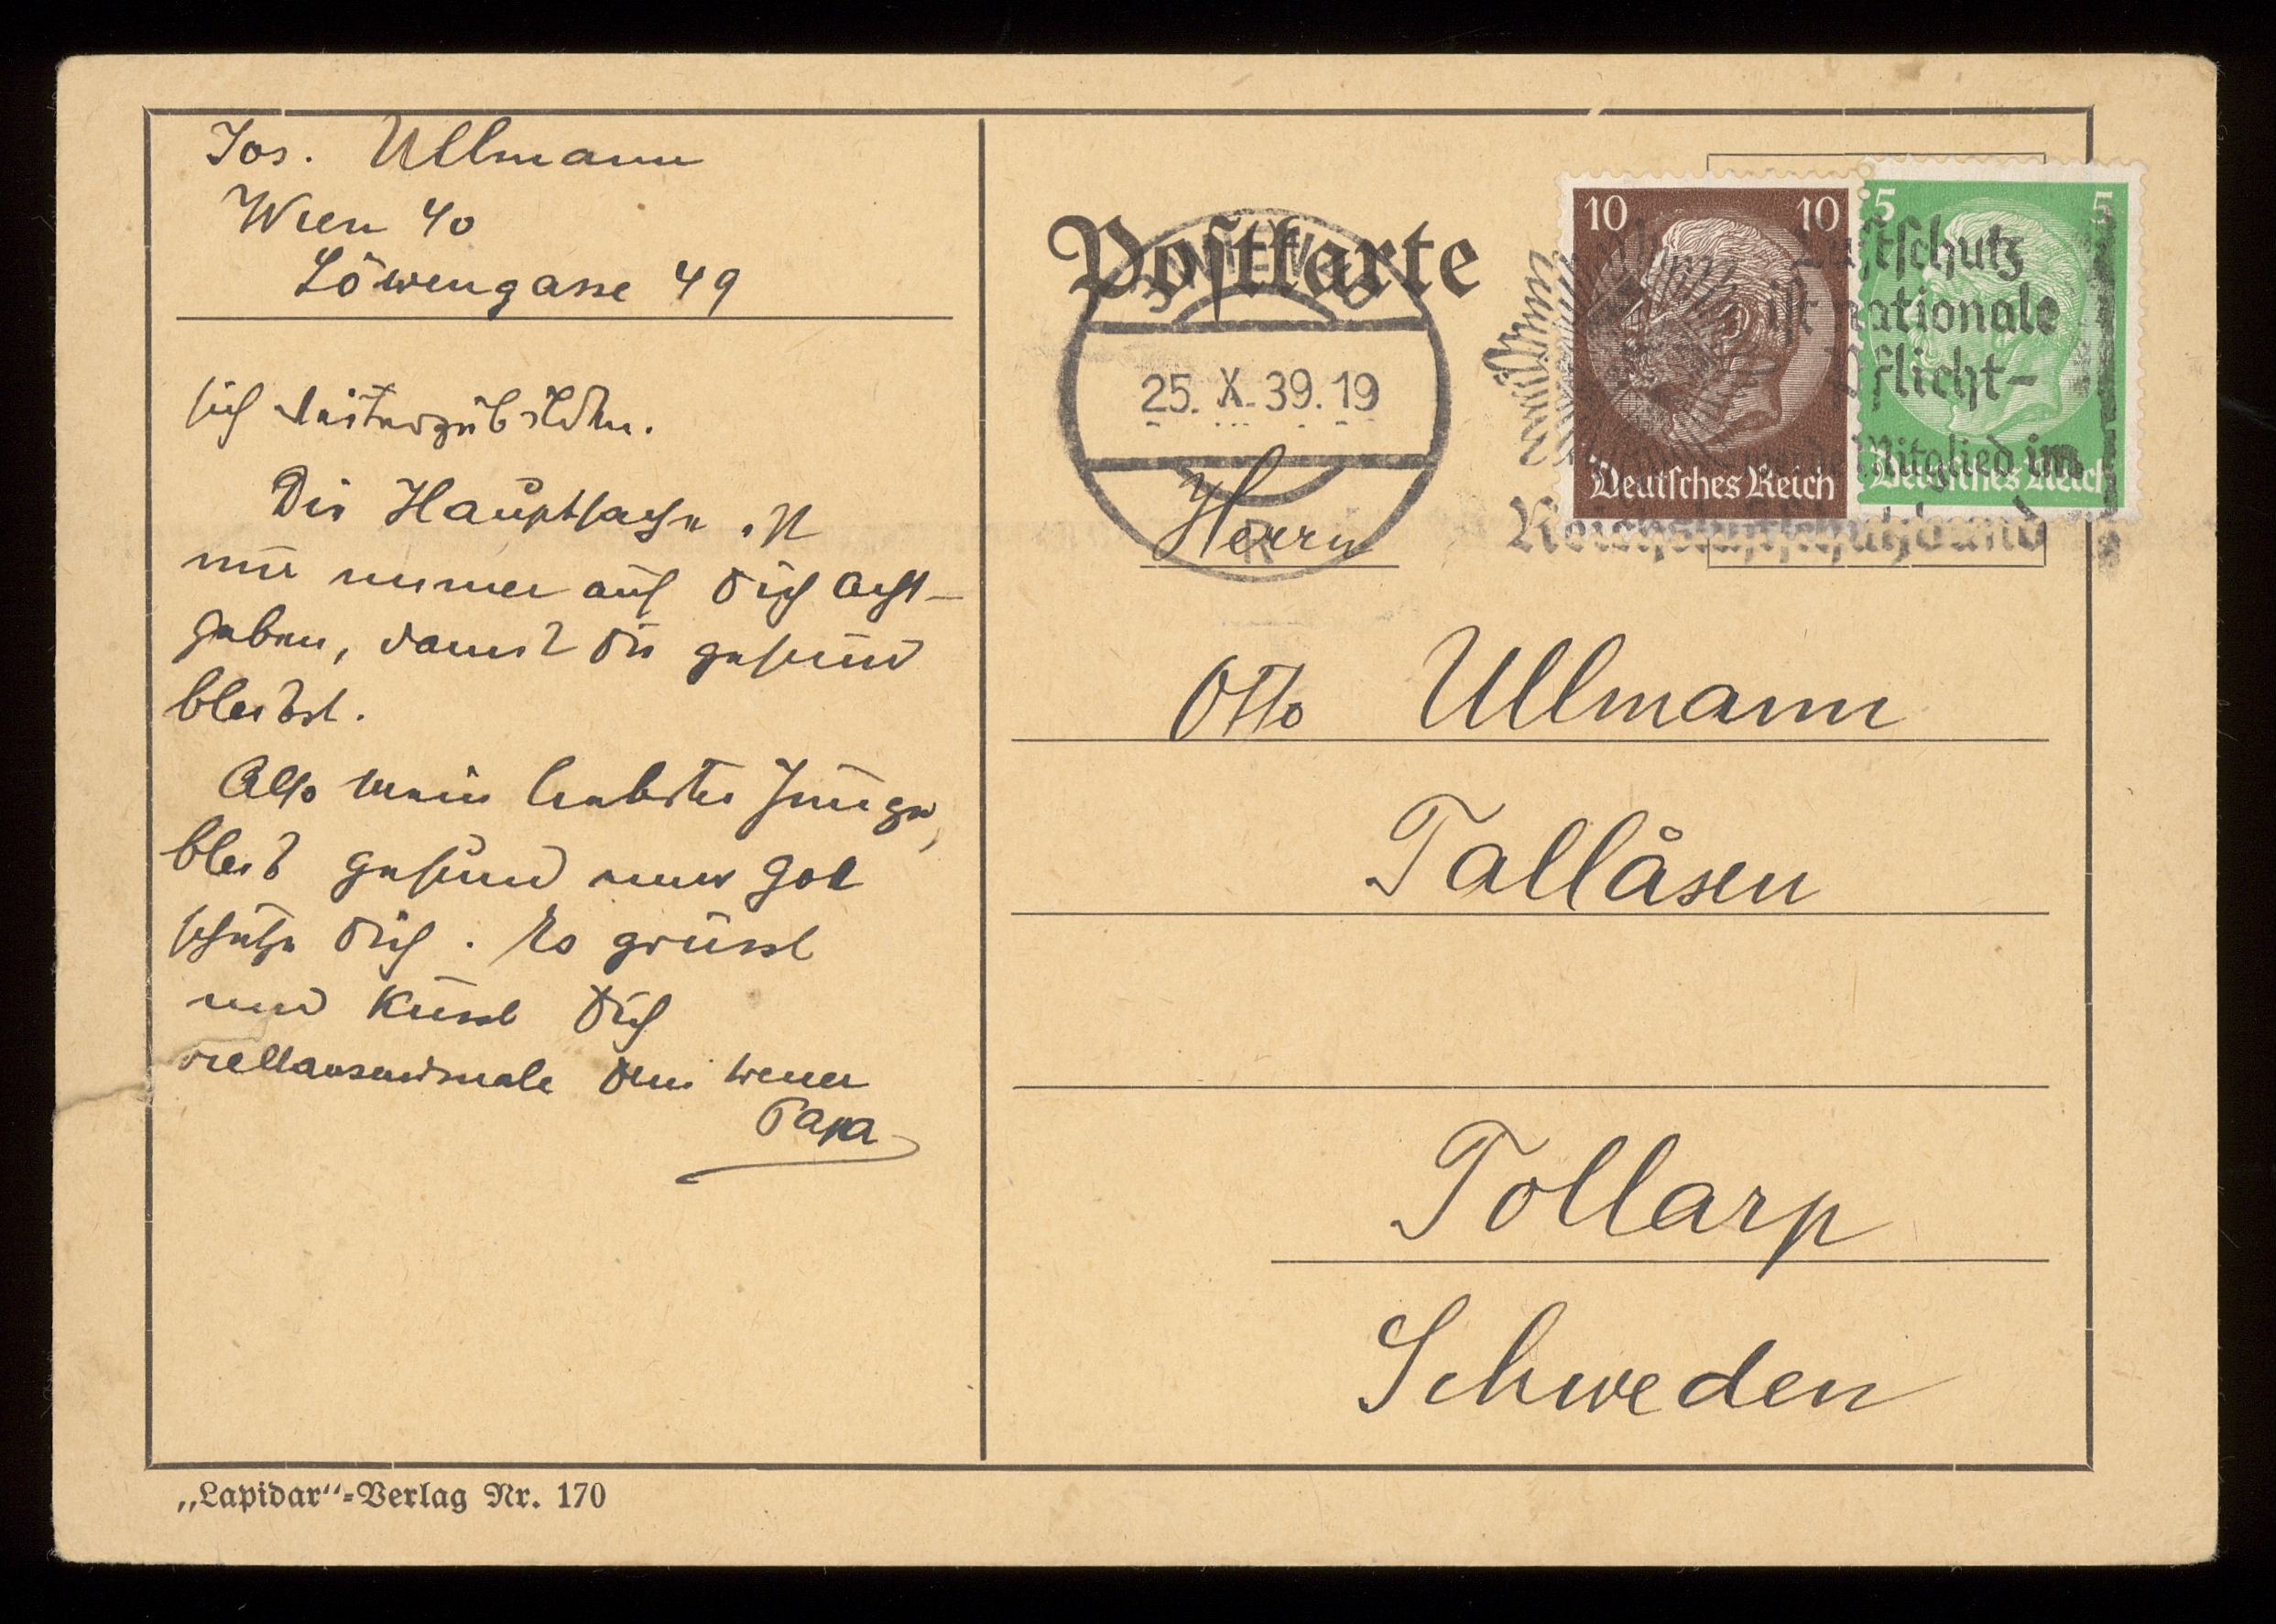 Jos. Ullmann
Wien 40
Löwengasse 49
sich weiterzubilden.
Die Hauptsache ist
nur immer auf Dich acht-
geben, damit Du gesund
bleibst.
Also mein liebster Junge,
bleib gesund unser Gott
schütze Dich. Es grüsst
und küsst Dich
vieltausendmale Dein treuer
Papa
„Lapidar“-Verlag Nr. 170
Postkarte
WIEN
25. X. 39. 19
10 10
Deutsches Reich
5 5
Deutsches Reich
Luftschutz
ist nationale
Pflicht-
Mitglied im
Reichsluftschutzbund
Herrn
Otto Ullmann
Tallåsen
Tollarp
Schweden